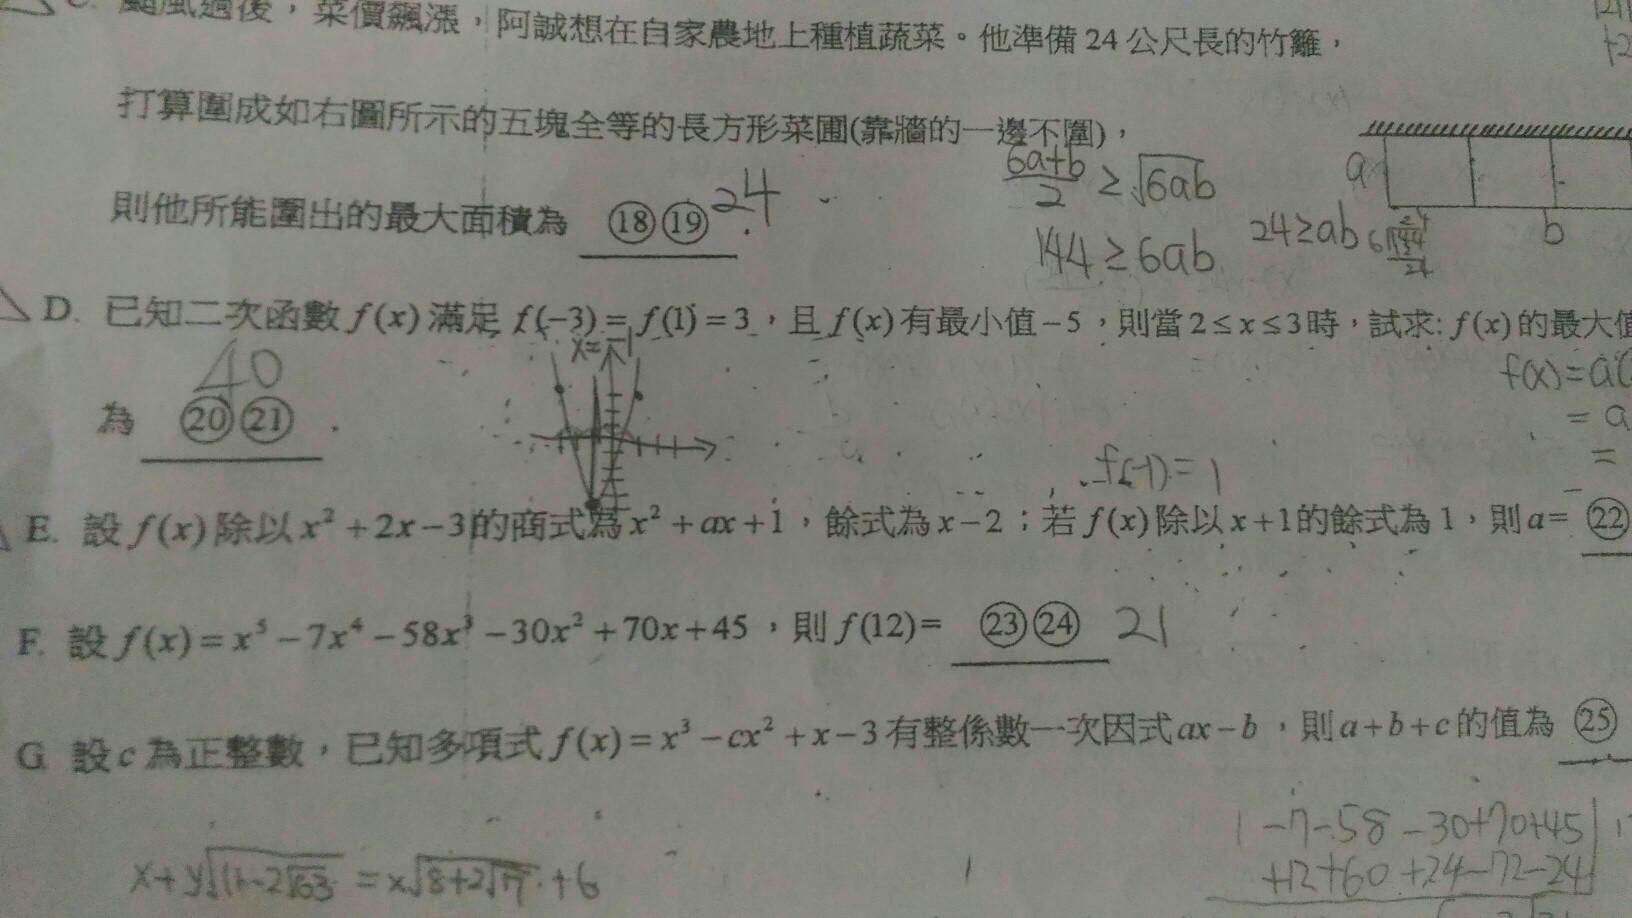 C. 颱風過後，菜價飆漲，阿誠想在自家農地上種植蔬菜。他準備 24 公尺長的竹籬，
打算圍成如右圖所示的五塊全等的長方形菜圃(靠牆的一邊不圍)，
6a+b/2 ≥ √6ab
a
則他所能圍出的最大面積為 ⑱⑲ . 24
144 ≥ 6ab
24≥ab
b
D. 已知二次函數 f(x) 滿足 f(−3) = f(1) = 3，且 f(x) 有最小值 −5，則當 2 ≤ x ≤ 3 時，試求: f(x) 的最大值
x=-1
f(x)=a(
= a
=
40
為 ⑳㉑ .
f(-1)=1
E. 設 f(x) 除以 x² + 2x − 3 的商式為 x² + ax + 1，餘式為 x − 2；若 f(x) 除以 x + 1 的餘式為 1，則 a = ㉒
F. 設 f(x) = x⁵ − 7x⁴ − 58x³ − 30x² + 70x + 45，則 f(12) = ㉓㉔ 21
G. 設 c 為正整數，已知多項式 f(x) = x³ − cx² + x − 3 有整係數一次因式 ax − b，則 a + b + c 的值為 ㉕
1 -7 -58 -30 +70 +45
+12 +60 +24 -72 -24